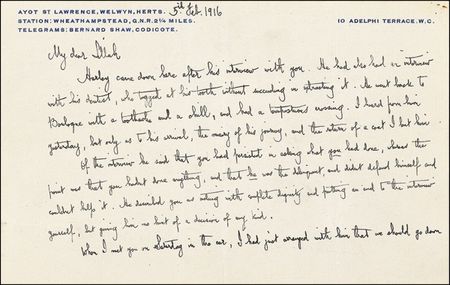 AYOT ST LAWRENCE, WELWYN, HERTS.
STATION: WHEATHAMPSTEAD, G.N.R. 2¼ MILES.
TELEGRAMS: BERNARD SHAW, CODICOTE.
5th Feb. 1916
10 ADELPHI TERRACE. W.C.
My dear Lillah
Harley came down here after his interview with you. He had also had an interview
with his dentist, who tugged at his tooth without succeeding in extracting it. He went back to
Boulogne with a toothache and a chill, and had a tempestuous crossing. I heard from him
yesterday, but only as to his arrival, the misery of his journey, and the return of a coat I lent him
Of the interview he said that you had persisted in asking what you had done, whereas the
point was that you hadnt done anything, and that he was the delinquent, and didnt defend himself and
couldnt help it. He described you as acting with complete dignity and putting an end to the interview
yourself, but giving him no hint of a decision of any kind.
When I met you on Saturday in the car, I had just arranged with him that we should go down